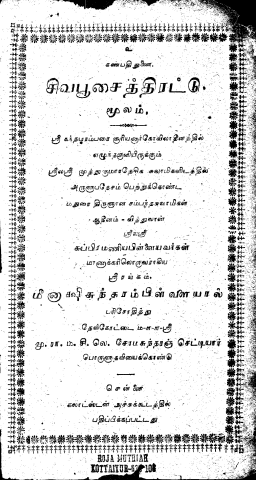 உ
கணபதிதுணை.
சிவபூசைத்திரட்டு.
மூலம்.
ஸ்ரீ கந்தபுரம்பசை சூரியனார்கோவிலாதீனத்தில்
எழுந்தருளியிருக்கும்
ஸ்ரீலஸ்ரீ முத்துக்குமாரதேசிக சுவாமிகளிடத்தில்
அருளுபதேசம் பெற்றுக்கொண்ட
மதுரை திருஞான சம்பந்தசுவாமிகள்
ஆதீனம் - வித்துவான்
ஸ்ரீலஸ்ரீ
சுப்பிரமணியபிள்ளையவர்கள்
மாணாக்கரிலொருவராகிய
மீனாக்ஷிசுந்தரம்பிள்ளையால்
பரிசோதித்து
தேவிகோட்டை ம-ள-ள-ஸ்ரீ
மு. ரா. ம. சி. லெ. சோமசுந்தரஞ் செட்டியார்
பொருளுதவியைக்கொண்டு
சென்னை
அச்சுக்கூடத்தில்
பதிப்பிக்கப்பட்டது
ROJA MUTHIAH
KOTTAIYUR-623 106